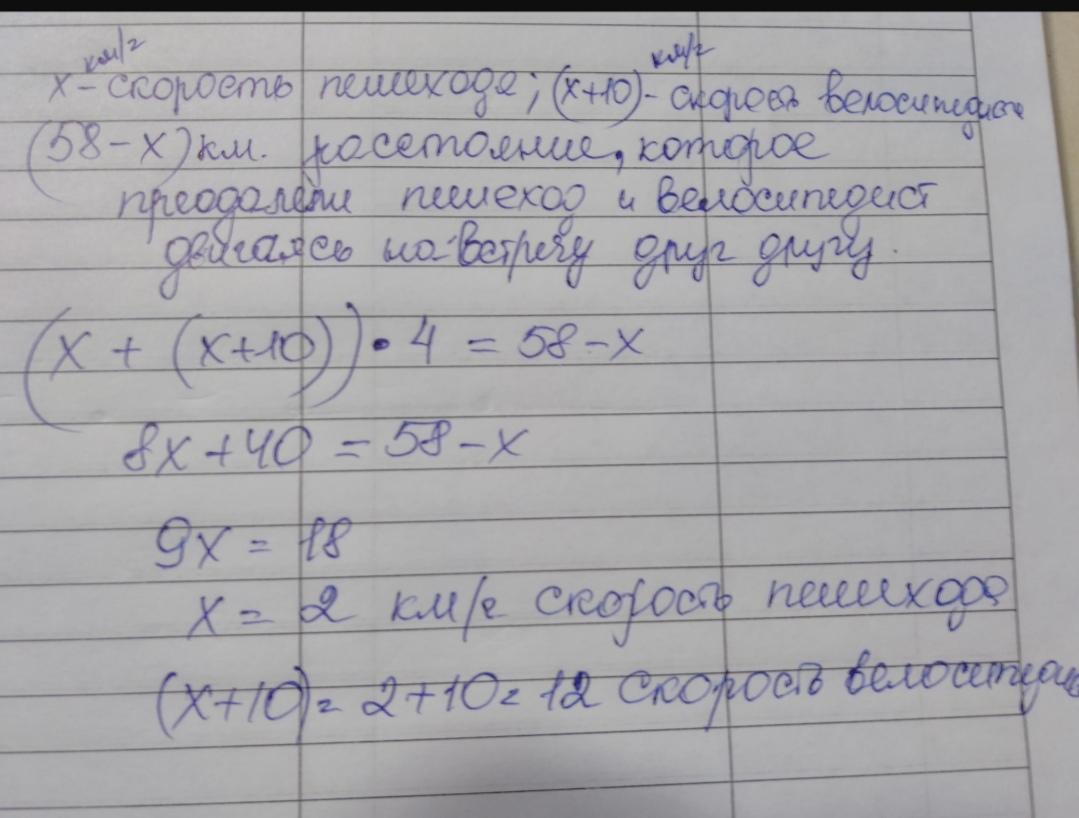 км/г км/г
x - скорость пешехода; (x+10) - скорость велосипедиста
(58-x) км. расстояние, которое
преодолели пешеход и велосипедист
двигаясь на-встречу друг другу.
(x + (x+10)) • 4 = 58-x
8x+40 = 58-x
9x = 18
x = 2 км/г скорость пешехода
(x+10) = 2+10 = 12 скорость велосипедис